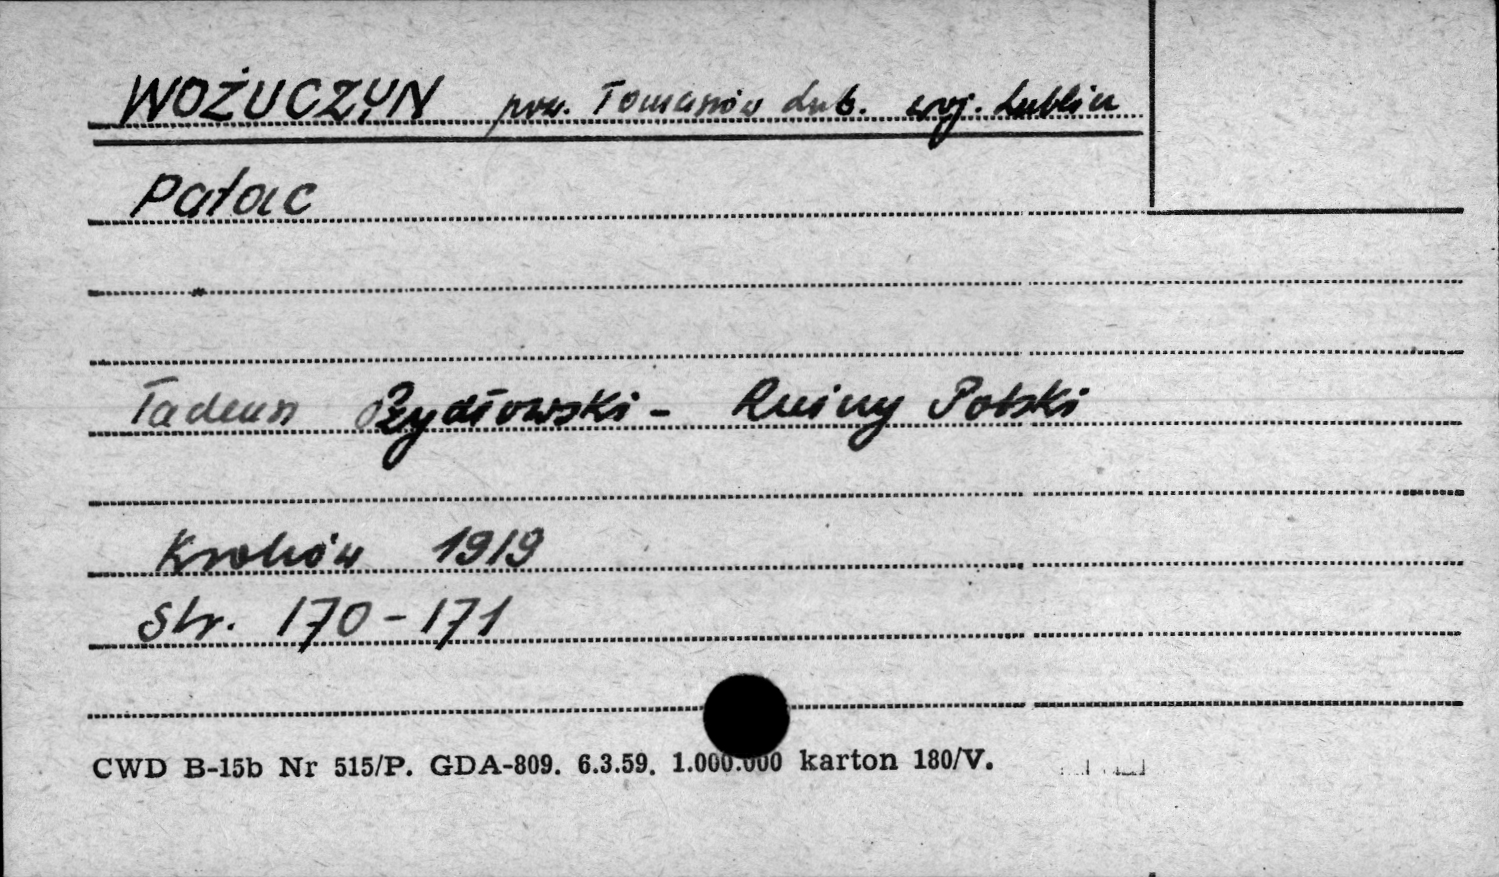 WOŻUCZYN pow. Tomaszów Lub. woj. Lublin
Pałac
Tadeusz Szydłowski - Ruiny Polski
Kraków 1919
Str. 170-171
CWD B-15b Nr 515/P. GDA-809. 6.3.59. 1.000.000 karton 180/V.